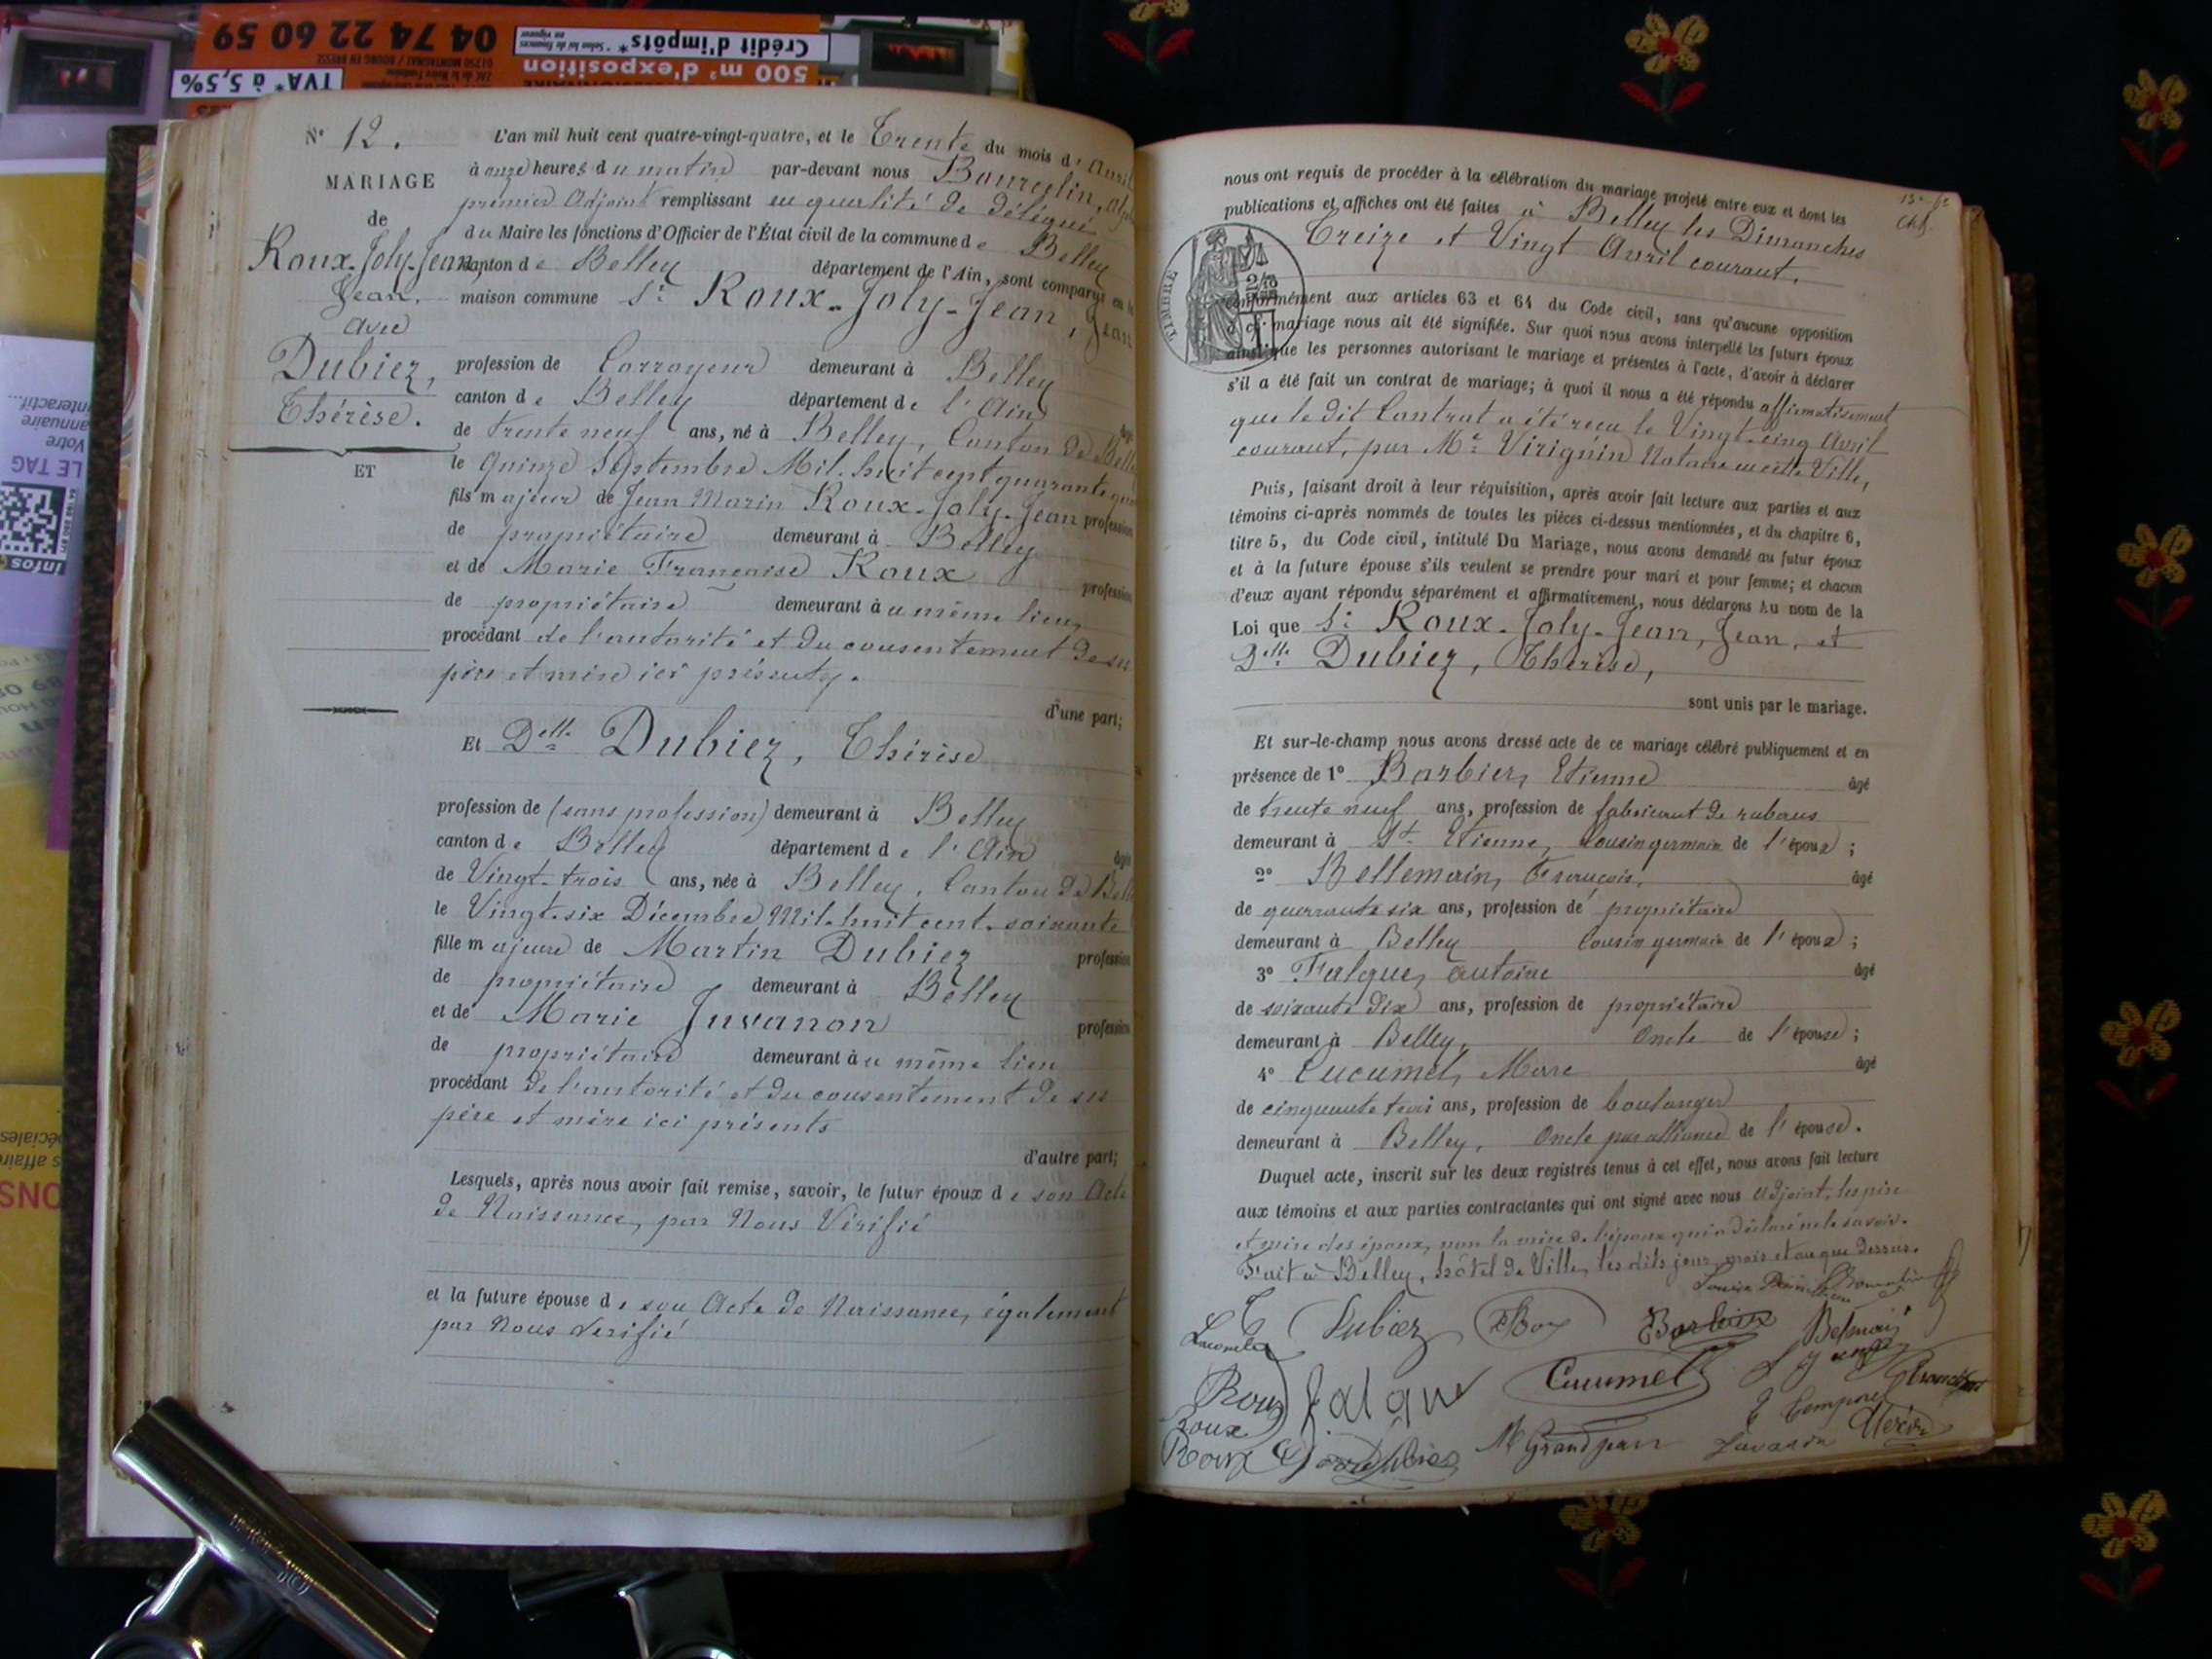 04 74 22 60 59
Crédit d'impôts*
* Selon loi de finances
en vigueur
500 m² d'exposition
TVA* à 5,5%
ZAC de la Noire Fontaine
01250 MONTAGNAT / BOURG EN BRESSE
Votre
annuaire
interactif...
LE TAG
infos
N° 12.
MARIAGE
de
Roux-Joly-Jean
Jean.
avec
Dubiez,
Thérèse.
ET
L'an mil huit cent quatre-vingt-quatre, et le Trente du mois d'Avril
à onze heures du matin par-devant nous Bourcelin,
premier Adjoint remplissant en qualité de délégué
du Maire les fonctions d'Officier de l'État civil de la commune de Belley
canton de Belley département de l'Ain, sont comparus en la
maison commune Sr Roux-Joly-Jean, Jean
profession de Corroyeur demeurant à Belley
canton de Belley département de l'Ain
de trente neuf ans, né à Belley, Canton de Belley
le Quinze Septembre Mil-huit cent quarante
fils majeur de Jean Marin Roux-Joly-Jean profession
de propriétaire demeurant à Belley
et de Marie Françoise Roux profession
de propriétaire demeurant au même lieu
procédant de l'autorité et du consentement de ses
père et mère ici présents.
d'une part;
Et Delle Dubiez, Thérèse
profession de (sans profession) demeurant à Belley
canton de Belley département de l'Ain âgée
de Vingt-trois ans, née à Belley, Canton de Belley
le Vingt-six Décembre Mil-huit cent-soixante
fille majeure de Martin Dubiez profession
de propriétaire demeurant à Belley
et de Marie Juvanon profession
de propriétaire demeurant au même lieu
procédant de l'autorité et du consentement de ses
père et mère ici présents
d'autre part;
Lesquels, après nous avoir fait remise, savoir, le futur époux de son Acte
de Naissance, par Nous Vérifié
et la future épouse de son Acte de Naissance, également
par Nous Vérifié
nous ont requis de procéder à la célébration du mariage projeté entre eux et dont les
publications et affiches ont été faites à Belley les Dimanches
Treize et Vingt Avril courant.
TIMBRE
conformément aux articles 63 et 64 du Code civil, sans qu'aucune opposition
à ce mariage nous ait été signifiée. Sur quoi nous avons interpellé les futurs époux
ainsi que les personnes autorisant le mariage et présentes à l'acte, d'avoir à déclarer
s'il a été fait un contrat de mariage; à quoi il nous a été répondu affirmativement
que le dit Contrat a été reçu le Vingt-cinq Avril
courant, par Me Virignin Notaire en cette Ville,
Puis, faisant droit à leur réquisition, après avoir fait lecture aux parties et aux
témoins ci-après nommés de toutes les pièces ci-dessus mentionnées, et du chapitre 6,
titre 5, du Code civil, intitulé Du Mariage, nous avons demandé au futur époux
et à la future épouse s'ils veulent se prendre pour mari et pour femme; et chacun
d'eux ayant répondu séparément et affirmativement, nous déclarons Au nom de la
Loi que Sr Roux-Joly-Jean, Jean, et
Delle Dubiez, Thérèse,
sont unis par le mariage.
Et sur-le-champ nous avons dressé acte de ce mariage célébré publiquement et en
présence de 1° Barbier, Etienne âgé
de trente neuf ans, profession de fabricant de rubans
demeurant à St Etienne, Cousin germain de l'époux;
2° Bellemain, François, âgé
de quarante six ans, profession de propriétaire
demeurant à Belley Cousin germain de l'époux;
3° Falque, Antoine âgé
de soixante dix ans, profession de propriétaire
demeurant à Belley, Oncle de l'épouse;
4° Cucumel, Marc âgé
de cinquante trois ans, profession de boulanger
demeurant à Belley, Oncle par alliance de l'épouse.
Duquel acte, inscrit sur les deux registres tenus à cet effet, nous avons fait lecture
aux témoins et aux parties contractantes qui ont signé avec nous Adjoint, les père
et mère des époux, non la mère de l'époux qui a déclaré ne le savoir.
Fait à Belley, hôtel de Ville, les dits jour, mois et an que dessus.
Dubiez Roux Barbier
Roux falque Cucumel
Roux
Roux M Grandjean